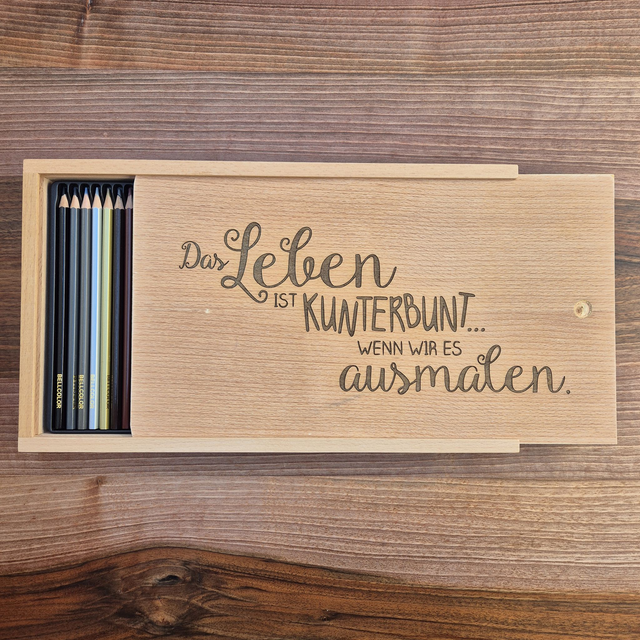 Das Leben
IST KUNTERBUNT...
WENN WIR ES
ausmalen.
BELLCOLOR